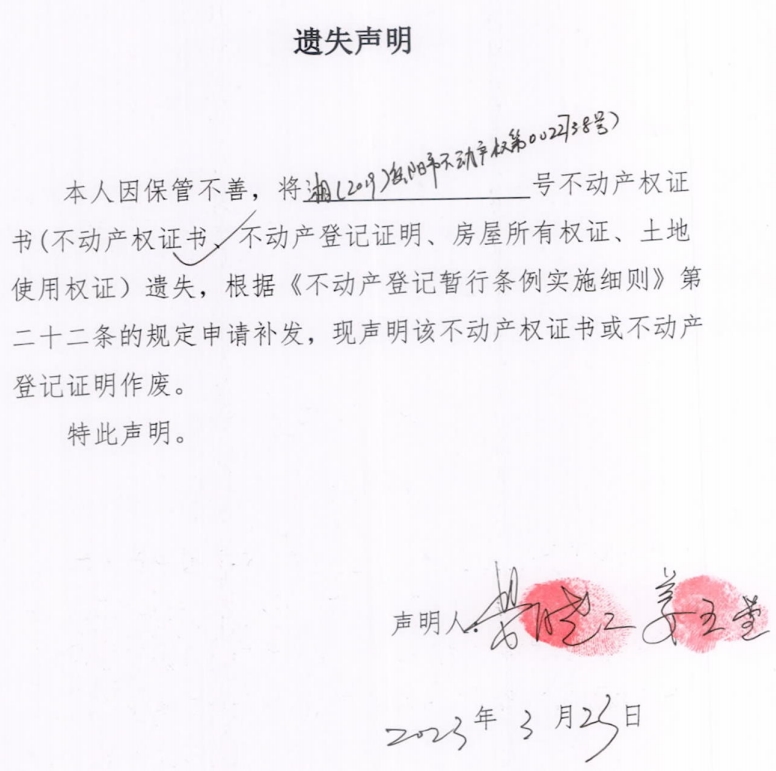 遗失声明
本人因保管不善，将湘(2019)岳阳市不动产权第0022738号)号不动产权证
书(不动产权证书、不动产登记证明、房屋所有权证、土地
使用权证）遗失，根据《不动产登记暂行条例实施细则》第
二十二条的规定申请补发，现声明该不动产权证书或不动产
登记证明作废。
特此声明。
声明人:
2023年3月23日